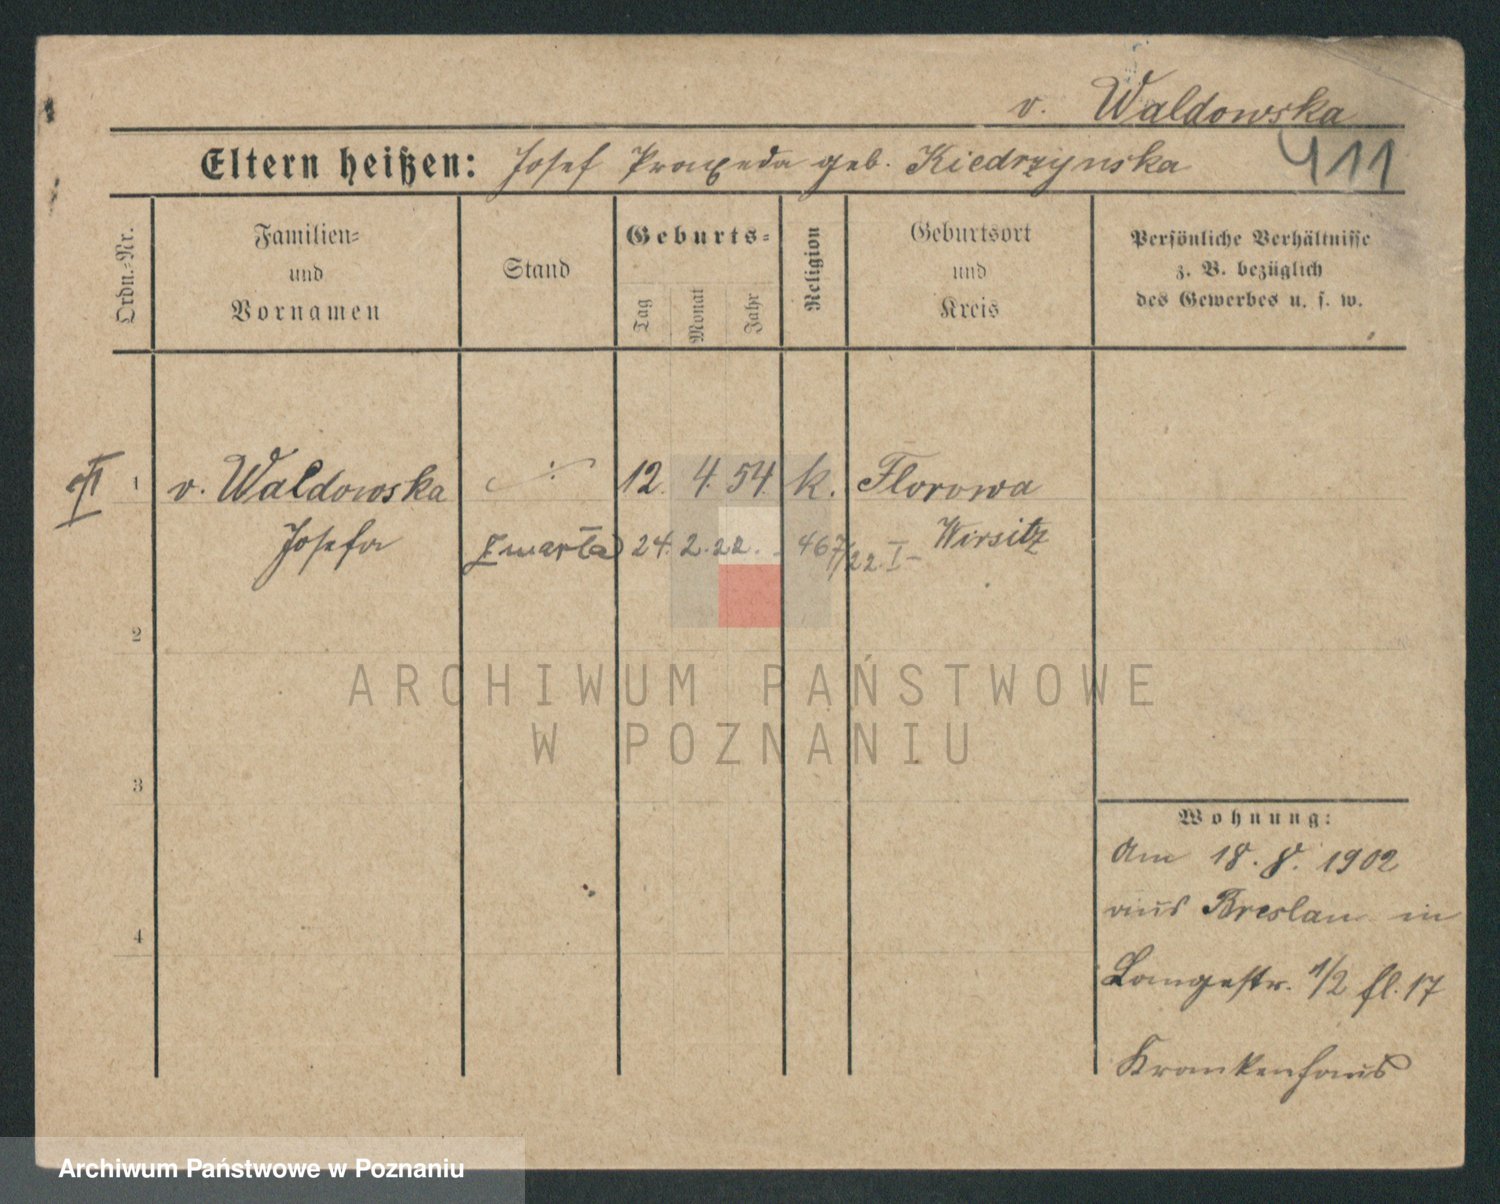 v. Waldowska
Eltern heißen: Josef Praxeda geb. Kiedrzynska
411
Ordn.-Nr.
Familien-
und
Vornamen
Stand
Geburts-
Tag
Monat
Jahr
Religion
Geburtsort
und
Kreis
Persönliche Verhältnisse
z. B. bezüglich
des Gewerbes u. s. w.
1 v. Waldowska ·/· 12. 4. 54. k. Florowa
Josefa zmarła 24. 2. 22. 467/22 I Wirsitz
2
3
4
Wohnung:
Am 18. 8. 1902
aus Breslau in
Langestr. 1/2 fl. 17
Krankenhaus
ARCHIWUM PAŃSTWOWE
W POZNANIU
Archiwum Państwowe w Poznaniu